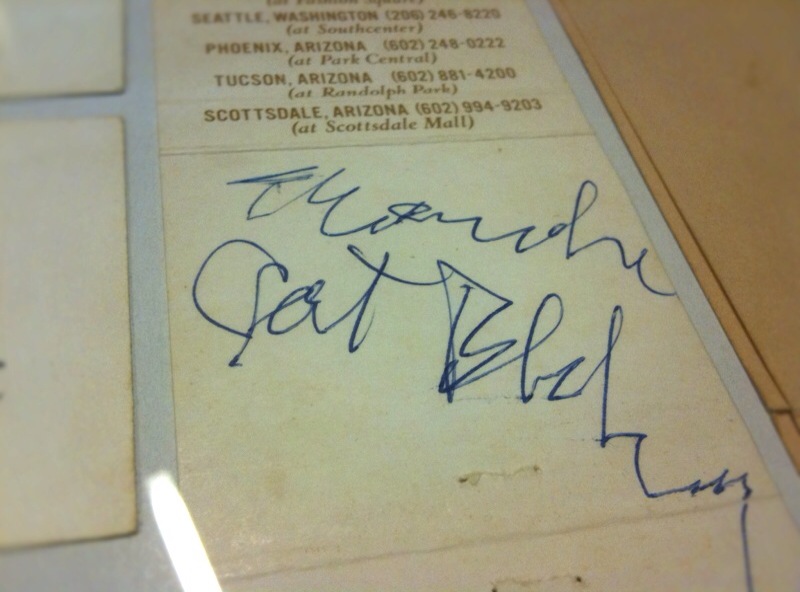 SEATTLE, WASHINGTON (206) 246-8220
(at Southcenter)
PHOENIX, ARIZONA (602) 248-0222
(at Park Central)
TUCSON, ARIZONA (602) 881-4200
(at Randolph Park)
SCOTTSDALE, ARIZONA (602) 994-9203
(at Scottsdale Mall)
Pat